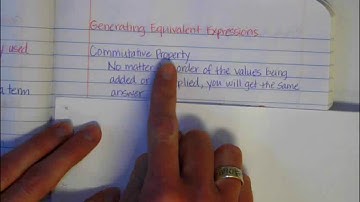 Generating Equivalent Expressions
y used
Commutative Property
No matter order of the values being
added or plied, you will get the same
a term
answer